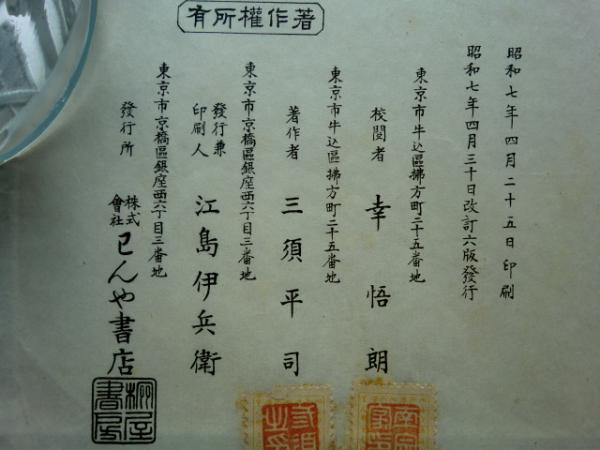 著作權所有
昭和七年四月二十五日印刷
昭和七年四月三十日改訂六版發行
東京市牛込區拂方町二十五番地
校閲者 幸悟朗
東京市牛込區拂方町二十五番地
著作者 三須平司
東京市京橋區銀座西六丁目三番地
發行兼印刷人 江島伊兵衛
東京市京橋區銀座西六丁目三番地
發行所 株式會社 わんや書店
椀屋書房